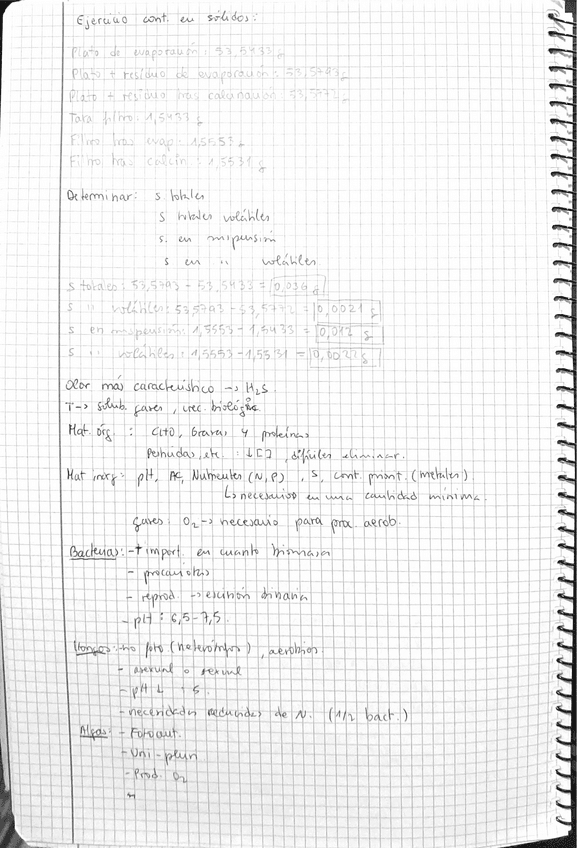 Ejercicio cont. en sólidos:
Plato de evaporación: 53,5433 g
Plato + residuo de evaporación: 53,5793 g
Plato + residuo tras calcinación: 53,5772 g
Tara filtro: 1,5433 g
Filtro tras evap: 1,5553 g
Filtro tras calcin.: 1,5531 g
Determinar: s totales
s totales volátiles
s. en suspensión
s en " volátiles
s totales: 53,5793 - 53,5433 = 0,036 g
s " volátiles: 53,5793 - 53,5772 = 0,0021 g
s en suspensión: 1,5553 - 1,5433 = 0,012 g
s " volátiles: 1,5553 - 1,5531 = 0,0022 g
Olor más característico -> H2S
T -> solub. gases, crec. biológico
Mat. órg.: CHO, Grasas y proteínas
Pesticidas, etc. : ↓[ ], difíciles eliminar.
Mat inorg: pH, Nutrientes (N, P), S, cont. priorit. (metales)
↳ necesarios en una cantidad mínima.
gases: O2 -> necesario para proc. aerob.
Bacterias: - + import. en cuanto biomasa
- procariotas
- reprod. -> escisión binaria
- pH: 6,5 - 7,5
Hongos: - no foto (heterótrofos), aerobios
- asexual o sexual
- pH ↓ : 5.
- necesidades reducidas de N. (1/2 bact.)
Algas: - Fotoaut.
- Uni - pluri
- Prod. O2